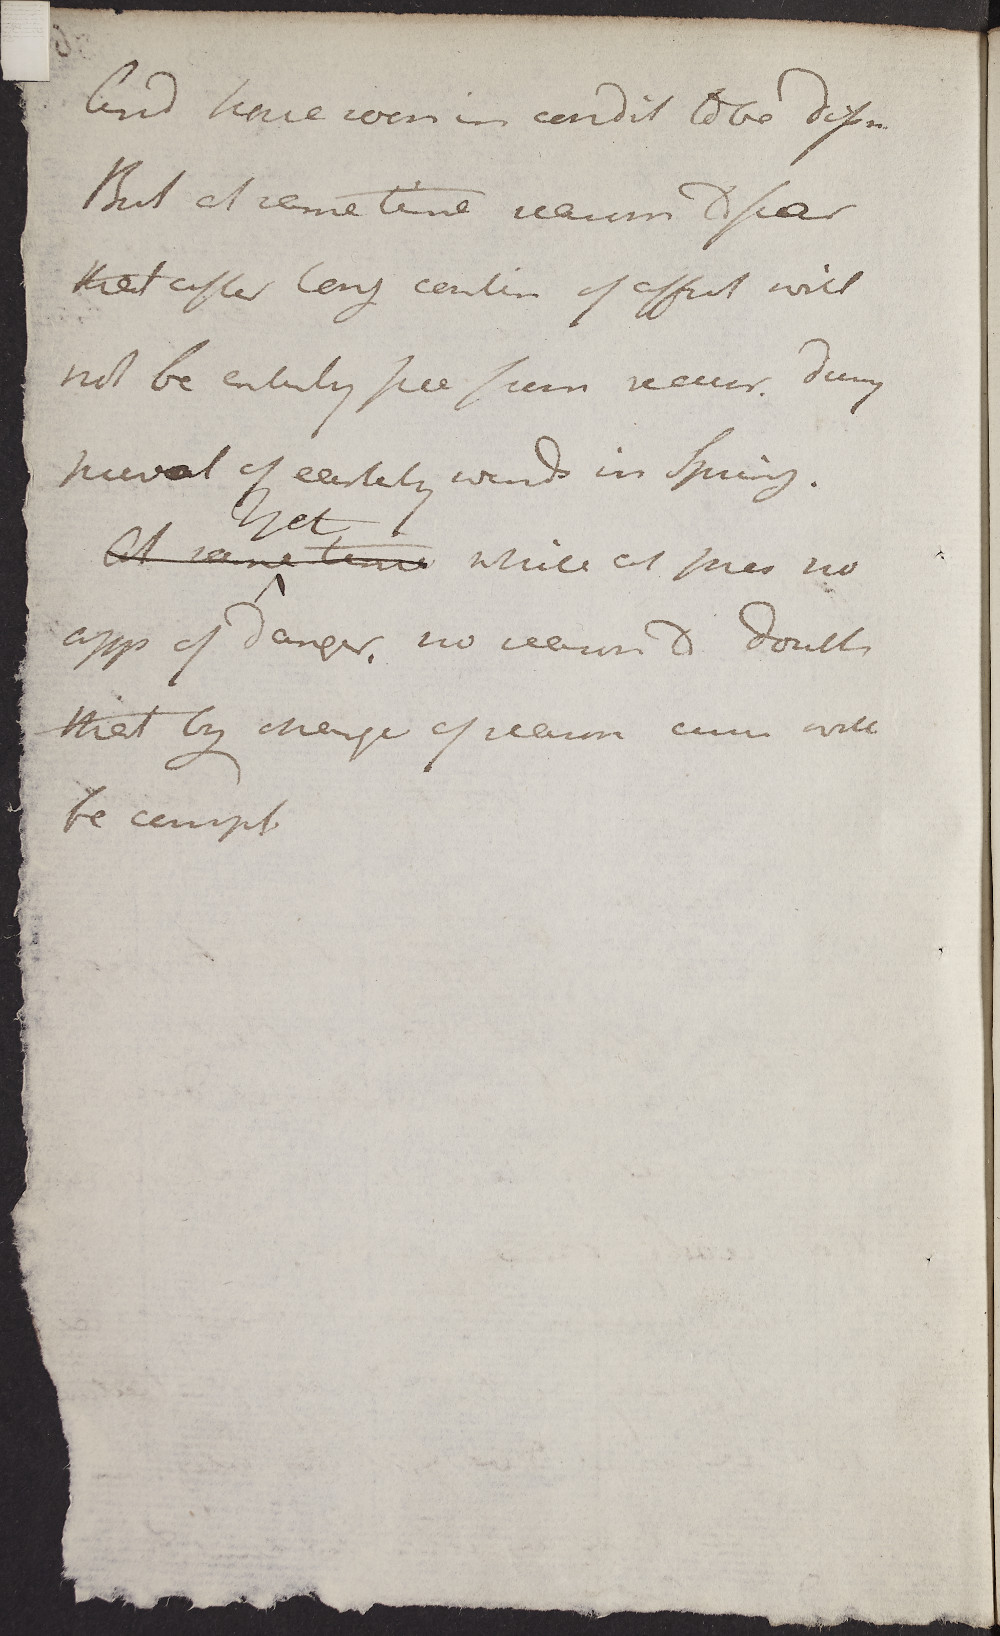 And hence soon in condit to be dismd
But at same time reason to fear
that after long contin of affect will
not be entirely free from recur. during
preval of easterly winds in Spring.
Yet
At same time while at pres no
app of danger. no reason to doubt
that by change of season cure will
be compt